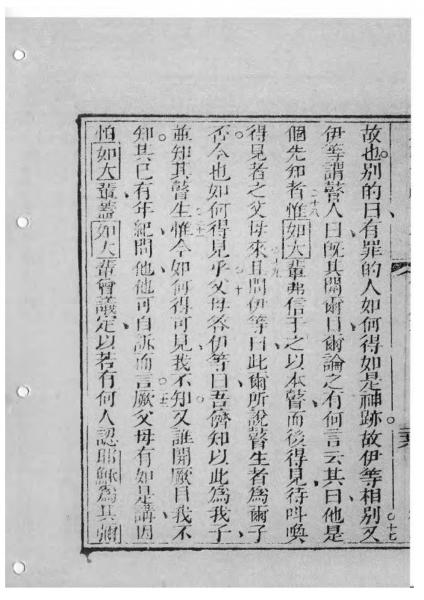 故也別的曰有罪的人如何得如是神跡故伊等相別又
十七
伊等謂瞽人曰既其開爾目爾論之有何言云其曰他是
個先知者惟如大輩弗信于之以本瞽而後得見待呌喚
十八
得見者之父母來且問伊等曰此爾所說瞽生者為爾子
十九
否今也如何得見乎父母答伊等曰吾儕知以此為我子
二十
並知其瞽生惟今如何得可見我不知又誰開厥目我不
二十一
知其已有年紀問他他可自訴而言厥父母有如是講因
怕如大輩蓋如大輩會議定以若有何人認耶穌為其彌